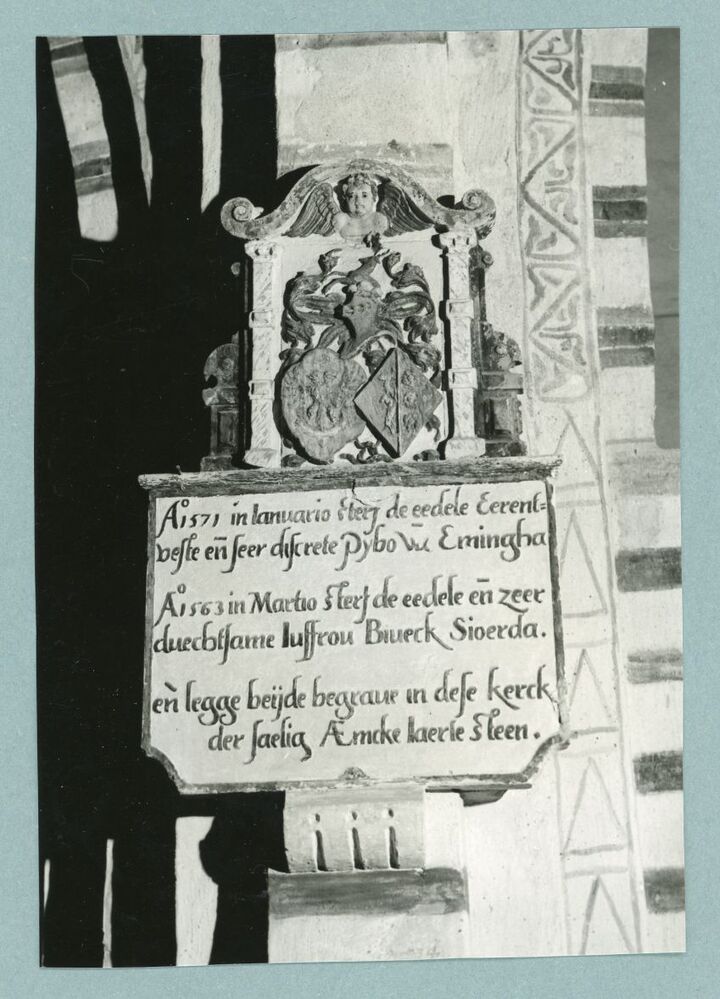 Aº 1571 in Ianuario sterf de eedele Eerent=
veste en̄ seer discrete Pÿbo Vā Emingha
Aº 1563 in Martio sterf de eedele en̄ zeer
duechtsame Iuffrou Biueck Sioerda.
en̄ legge beÿde begraue in dese kerck
der saelig Æmcke Iaerle steen.